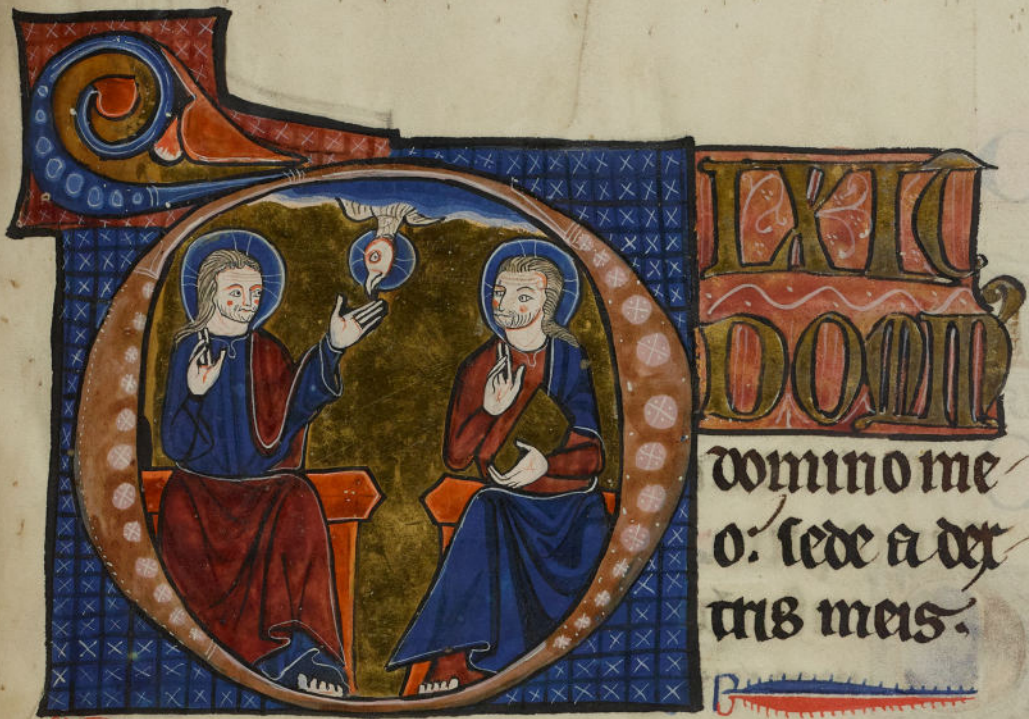 DIXIT
DOMIN
domino me
o: sede a dex
tris meis.